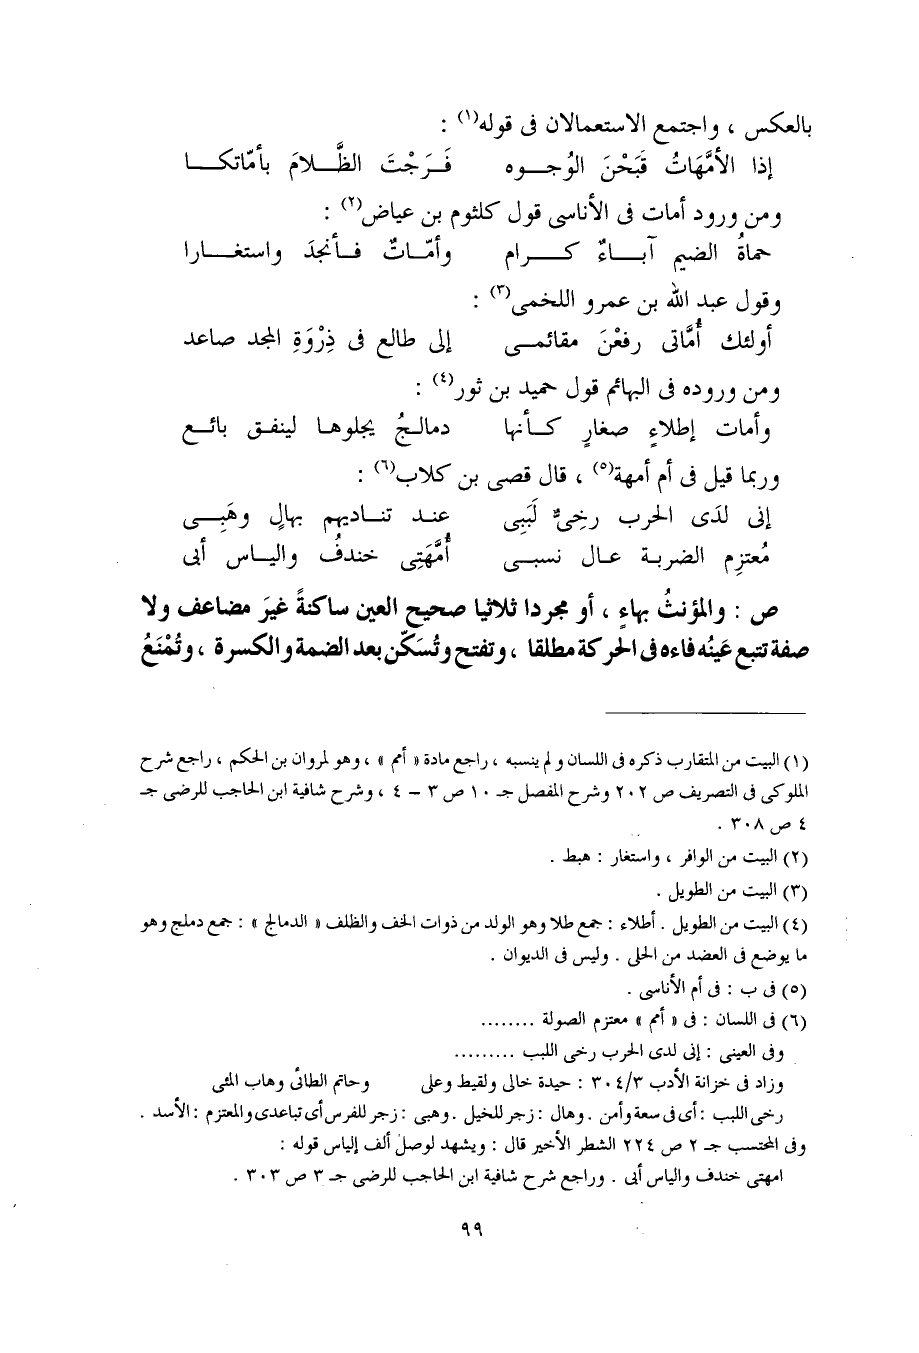 بالعكس ، واجتمع الاستعمالان فى قوله(١) :
إذا الأمَّهَاتُ قَبَحْنَ الوُجــوه فَــرَجْتَ الظَّـــلامَ بأمَّاتكـــا
ومن ورود أمات فى الأناسى قول كلثوم بن عياض(٢) :
حماةُ الضيم آبـــاءٌ كـــرام وأمّـاتٌ فـأنجدَ واستغـــارا
وقول عبد الله بن عمرو اللخمى(٣) :
أولئك أُمَّاتى رفعْنَ مقائمــى إلى طالع فى ذِرْوَةِ المجد صاعد
ومن وروده فى البهائم قول حميد بن ثور(٤) :
وأمات إطلاءٍ صغارٍ كـأنها دمالـجُ يجلوهـا لينفـق بائـع
وربما قيل فى أم أمهة(٥) ، قال قصى بن كلاب(٦) :
إنى لدَى الحرب رخِىٌّ لَبَبِى عنـد تنـاديهم بهالٍ وهَبِــى
مُعتزِم الضربة عـال نسبــى أُمَّهَتِى خندفُ واليـاس أبى
ص : والمؤنثُ بهاءٍ ، أو مجردا ثلاثيا صحيح العين ساكنةً غيرَ مضاعف ولا
صفة تتبع عَينُه فاءه فى الحركة مطلقا ، وتفتح وتُسَكّن بعد الضمة والكسرة ، وتُمْنَعُ
(١) البيت من المتقارب ذكره فى اللسان ولم ينسبه ، راجع مادة « أمم » ، وهو لمروان بن الحكم ، راجع شرح
الملوكى فى التصريف ص ٢٠٢ وشرح المفصل جـ ١٠ ص ٣ – ٤ ، وشرح شافية ابن الحاجب للرضى جـ
٤ ص ٣٠٨ .
(٢) البيت من الوافر ، واستغار : هبط .
(٣) البيت من الطويل .
(٤) البيت من الطويل . أطلاء : جمع طلا وهو الولد من ذوات الخف والظلف « الدمالج » : جمع دملج وهو
ما يوضع فى العضد من الحلى . وليس فى الديوان .
(٥) فى ب : فى أم الأناسى .
(٦) فى اللسان : فى « أمم » معتزم الصولة ........
وفى العينى : إنى لدى الحرب رخى اللبب .........
وزاد فى خزانة الأدب ٣٠٤/٣ : حيدة خالى ولقيط وعلى وحاتم الطائى وهاب المئى
رخى اللبب : أى فى سعة وأمن . وهال : زجر للخيل . وهبى : زجر للفرس أى تباعدى والمعتزم : الأسد .
وفى المحتسب جـ ٢ ص ٢٢٤ الشطر الأخير قال : ويشهد لوصل ألف إلياس قوله :
امهتى خندف والياس أبى . وراجع شرح شافية ابن الحاجب للرضى جـ ٣ ص ٣٠٣ .
٩٩